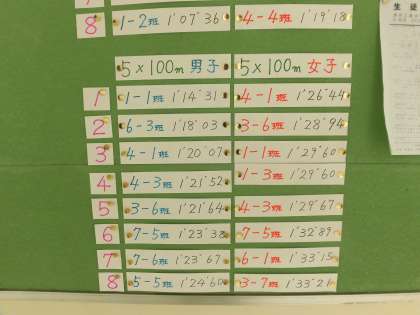 8 1-2班 1'07"36 4-4班 1'19"18
5×100m 男子 5×100m 女子
1 1-1班 1'14"31 4-1班 1'26"44
2 6-3班 1'18"03 3-6班 1'28"94
3 4-1班 1'20"07 1-1班 1'29"60
4 4-3班 1'21"52 1-3班 1'29"60
5 3-6班 1'21"64 4-3班 1'29"67
6 7-5班 1'23"38 7-5班 1'32"89
7 7-6班 1'23"67 6-1班 1'33"15
8 5-5班 1'24"60 3-7班 1'33"21
生徒